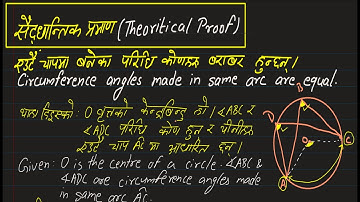 सैद्धान्तिक प्रमाण (Theoritical Proof)
एउटै चापमा बनेका परिधि कोणहरू बराबर हुन्छन् ।
Circumference angles made in same arc are equal.
थाहा दिइएको: O वृत्तको केन्द्रबिन्दु हो । ∠ABC र
∠ADC परिधि कोण हुन् र यीनीहरू
एउटै चाप AC मा आधारित छन् ।
Given: O is the centre of a circle. ∠ABC &
∠ADC are circumference angles made
in same arc AC.
B
D
O
A
C